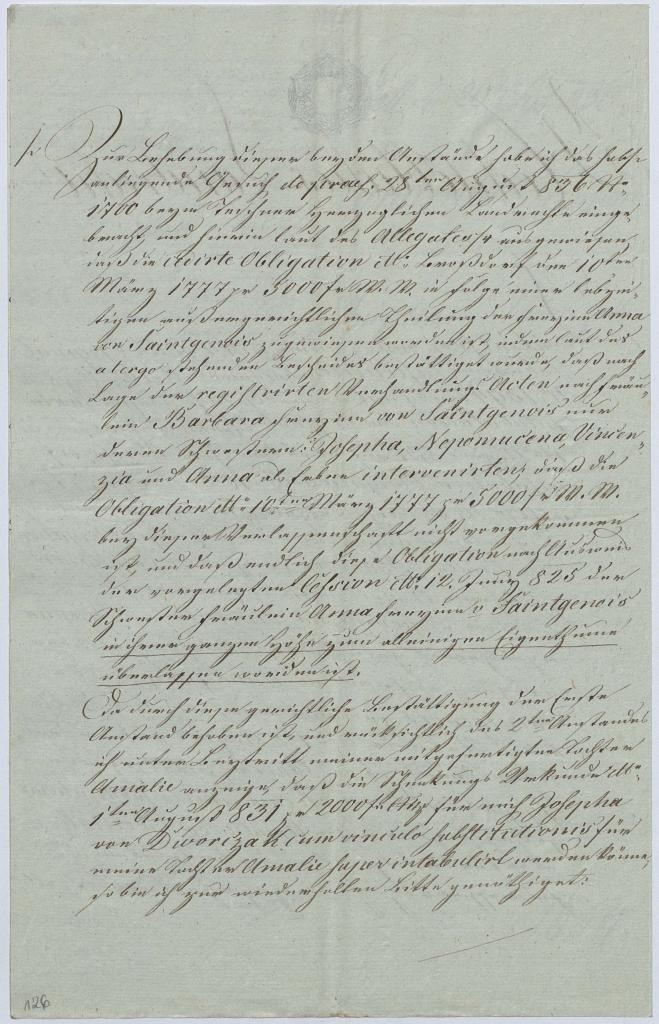 Zur Behebung dieser beyden Anstände habe ich das sub /.
anliegende Gesuch de praes. 28ten August 836 No
1700 beym Teschner Herzoglichen Landrechte einge-
bracht, und hierin laut des Allegates /. ausgewiesen,
daß die citirte Obligation dto Großdorf den 10ten
März 1777 pr 5000 fr W. W. in Folge einer lebzei-
tigen außergerichtlichen Theilung der Freyinn Anna
von Saintgenois zugewiesen worden ist, indem laut des
a tergo stehenden Bescheides bestättiget wurde, daß nach
Lage der registrirten Verhandlungs Acten nach Fräu-
lein Barbara Freyinn von Saintgenois nur
deren Schwestern: Josepha, Nepomucena, Vincen-
zia und Anna als Erben intervenirten, daß die
Obligation dto 10ten März 1777 pr 5000 fr W. W.
bey dieser Verlassenschaft nicht vorgekommen
ist, und daß endlich diese Obligation nach Ausweis
der vorgelegten Cession dto 12. Juny 825 der
Schwester Fräulein Anna Freyinn v Saintgenois
in ihrer ganzen Höhe zum alleinigen Eigenthume
überlassen worden ist.
Da durch diese gerichtliche Bestättigung der Erste
Anstand behoben ist, und rücksichtlich des 2ten Anstandes
ich unter Beytritt meiner mitgefertigten Tochter
Amalie anzeige, daß die Schenkungs Urkunde dto
1ten August 831 pr 2000 fr für mich Josepha
von Dworizak cum vinculo substitutionis für
meine Tochter Amalie super intabulirt werden könne,
so bin ich zur wiederholten Bitte genöthiget:
126